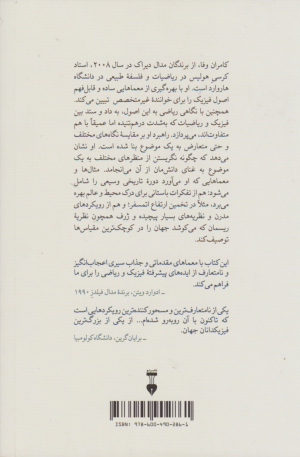 کامران وفا، از برندگان مدال دیراک در سال ۲۰۰۸، استاد
کرسی هولیس در ریاضیات و فلسفهٔ طبیعی در دانشگاه
هاروارد است. او با بهره‌گیری از معماهایی ساده و قابل‌فهم
اصول فیزیک را برای خوانندهٔ غیرمتخصص تبیین می‌کند.
همچنین با نگاهی ریاضی به این اصول، به داد و ستد بین
فیزیک و ریاضیات که به‌شدت درهم‌تنیده اما عمیقاً با هم
متفاوت‌اند، می‌پردازد. راهبرد او بر مقایسهٔ نگاه‌های مختلف
و حتی متعارض به یک موضوع بنا شده است. او نشان
می‌دهد که چگونه نگریستن از منظرهای مختلف به یک
موضوع به غنای دانش‌مان از آن می‌انجامد. مثال‌ها و
معماهایی که او می‌آورد دورهٔ تاریخی وسیعی را شامل
می‌شود: هم از تفکرات باستانی برای درک محیط و عالم بهره
می‌برد، مثلاً در تخمین ارتفاع اتمسفر؛ و هم از رویکردهای
مدرن و نظریه‌های بسیار پیچیده و ژرف همچون نظریهٔ
ریسمان که می‌کوشد جهان را در کوچک‌ترین مقیاس‌ها
توصیف کند.
این کتاب با معماهای مقدماتی و جذاب سیری اعجاب‌انگیز
و نامتعارف از ایده‌های پیشرفتهٔ فیزیک و ریاضی را برای ما
فراهم می‌کند.
ـ ادوارد ویتن، برندهٔ مدال فیلدز ۱۹۹۰
یکی از نامتعارف‌ترین و مسحورکننده‌ترین رویکردهایی است
که تاکنون با آن روبه‌رو شده‌ام... از یکی از بزرگ‌ترین
فیزیکدانان جهان.
ـ برایان گرین، دانشگاه کولومبیا
ISBN: 978-600-490-286-1